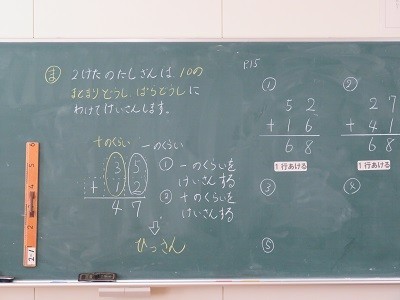 ま 2けたのたしざんは、10の
まとまりどうし ばらどうしに
わけてけいさんします。
十のくらい 一のくらい
35
+12
47
① 一のくらいを
けいさんする
② 十のくらいを
けいさんする
⇩
ひっさん
P.15
①
52
+16
68
1行あける
②
27
+41
68
1行あける
③
④
⑤
2-1